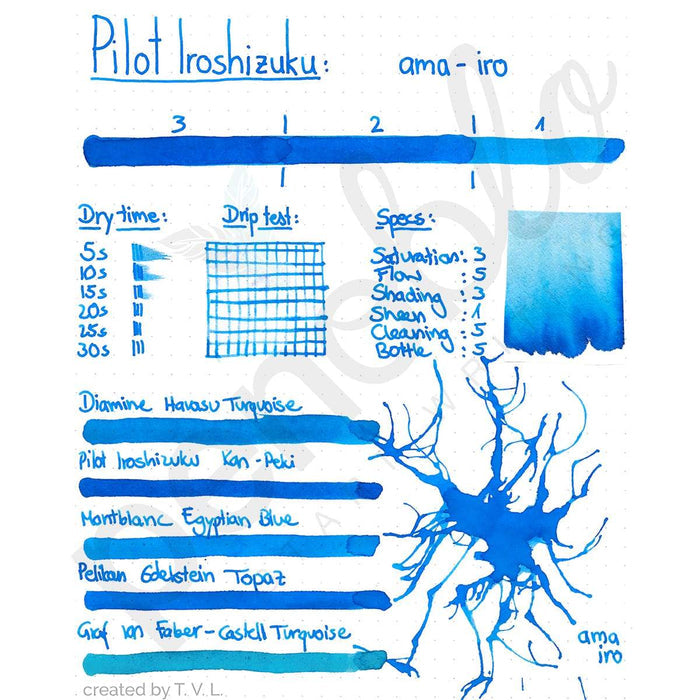 Pilot Iroshizuku: ama-iro
3 2 1
Dry time:
5s
10s
15s
20s
25s
30s
Drip test:
Specs:
Saturation: 3
Flow : 5
Shading : 3
Sheen : 1
Cleaning : 5
Bottle : 5
Diamine Havasu Turquoise
Pilot Iroshizuku Kon-Peki
Montblanc Egyptian Blue
Pelikan Edelstein Topaz
Graf von Faber-Castell Turquoise
ama
iro
created by T. V. L.
penoblo